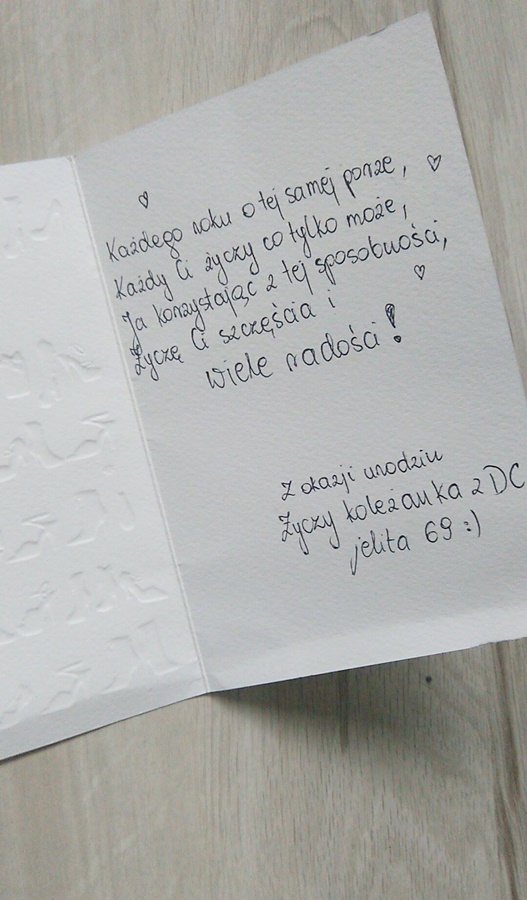 Każdego roku o tej samej porze,
Każdy Ci życzy co tylko może,
Ja korzystając z tej sposobności,
Życzę Ci szczęścia i
wiele radości!
Z okazji urodzin
Życzy koleżanka z DC
jelita 69 :)